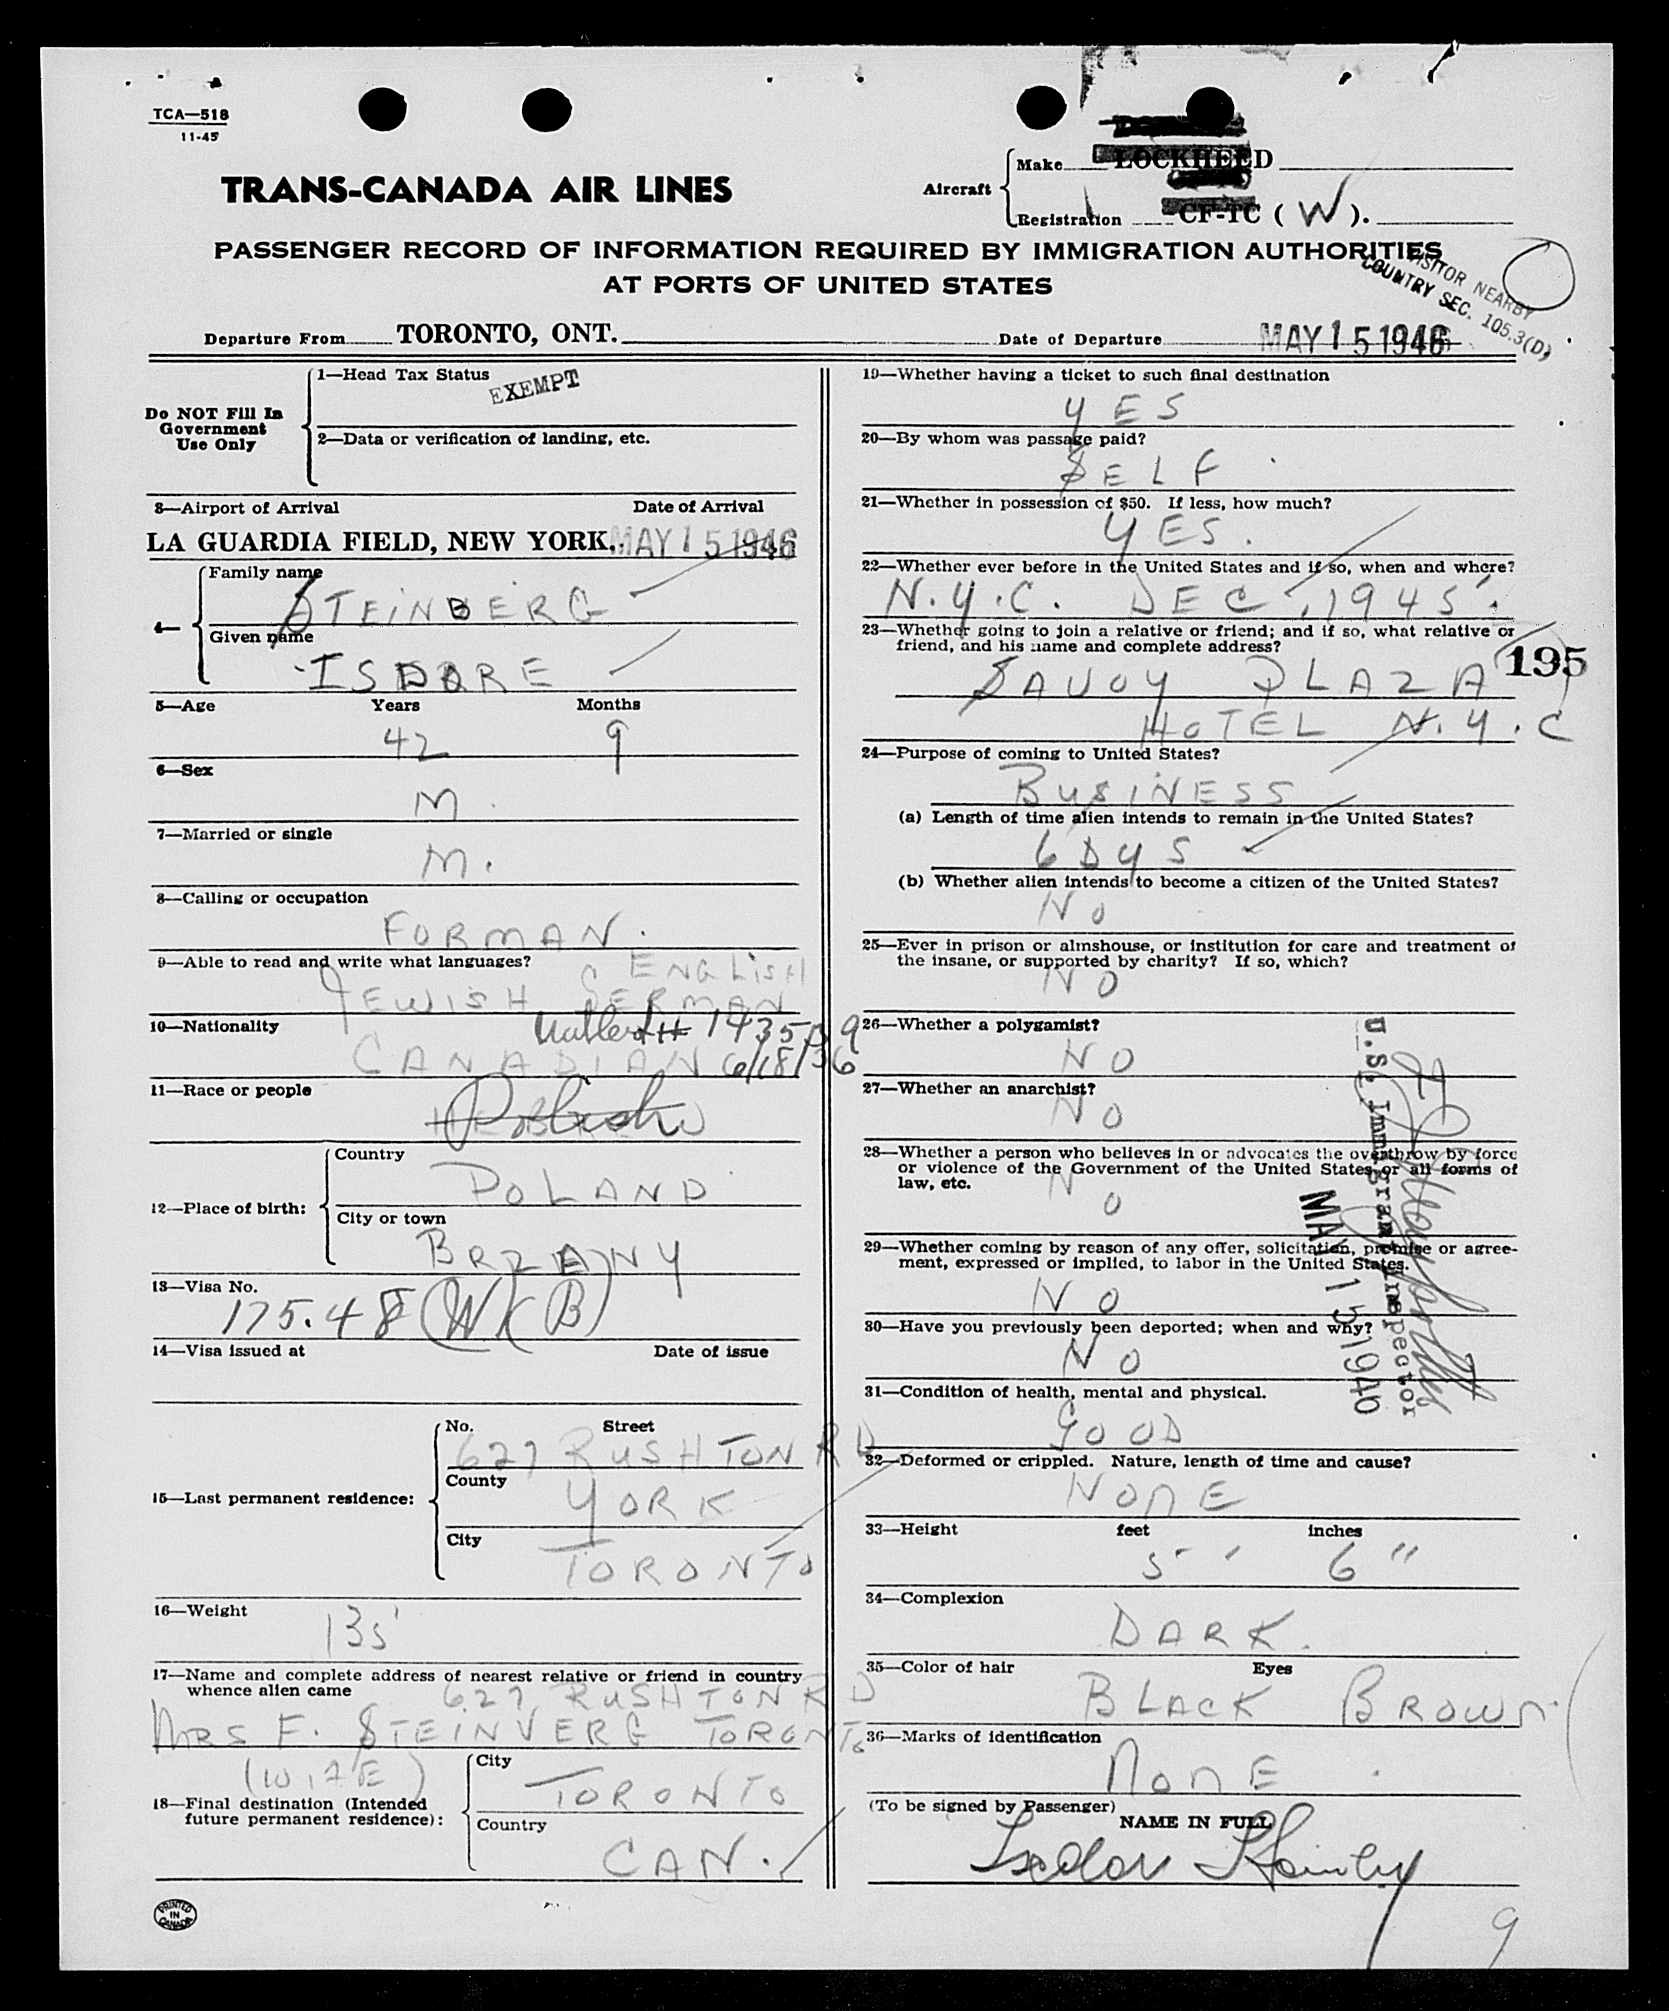 TCA—518
11-45
TRANS-CANADA AIR LINES
Aircraft
Make LOCKHEED
Registration CF-TC ( W ).
PASSENGER RECORD OF INFORMATION REQUIRED BY IMMIGRATION AUTHORITIES
AT PORTS OF UNITED STATES
VISITOR NEARBY
COUNTRY SEC. 105.3(D)
Departure From TORONTO, ONT.
Date of Departure MAY 15 1946
Do NOT Fill In
Government
Use Only
1—Head Tax Status
EXEMPT
2—Data or verification of landing, etc.
3—Airport of Arrival Date of Arrival
LA GUARDIA FIELD, NEW YORK, MAY 15 1946
4—
Family name
STEINBERG
Given name
ISDORE
5—Age Years Months
42 9
6—Sex
M.
7—Married or single
M.
8—Calling or occupation
FORMAN.
9—Able to read and write what languages?
ENGLISH
JEWISH GERMAN
10—Nationality
CANADIAN 6/18/36
11—Race or people
Polish
12—Place of birth:
Country
POLAND
City or town
BRZANY
13—Visa No.
175.48 (WKB)
14—Visa issued at Date of issue
15—Last permanent residence:
No. Street
627 RUSHTON RD
County
YORK
City
TORONTO
16—Weight
135
17—Name and complete address of nearest relative or friend in country
whence alien came
627 RUSHTON RD
MRS F. STEINVERG TORONTO
(WIFE)
18—Final destination (Intended
future permanent residence):
City
TORONTO
Country
CAN.
PRINTED
IN
CANADA
19—Whether having a ticket to such final destination
YES
20—By whom was passage paid?
SELF
21—Whether in possession of $50. If less, how much?
YES.
22—Whether ever before in the United States and if so, when and where?
N.Y.C. DEC, 1945.
23—Whether going to join a relative or friend; and if so, what relative or
friend, and his name and complete address?
195
SAVOY PLAZA
HOTEL N.Y.C
24—Purpose of coming to United States?
BUSINESS
(a) Length of time alien intends to remain in the United States?
6 DYS
(b) Whether alien intends to become a citizen of the United States?
NO
25—Ever in prison or almshouse, or institution for care and treatment of
the insane, or supported by charity? If so, which?
NO
26—Whether a polygamist?
NO
27—Whether an anarchist?
NO
28—Whether a person who believes in or advocates the overthrow by force
or violence of the Government of the United States or all forms of
law, etc.
NO
29—Whether coming by reason of any offer, solicitation, promise or agree-
ment, expressed or implied, to labor in the United States.
NO
30—Have you previously been deported; when and why?
NO
U.S. Immigrant Inspector
MAY 15 1940
31—Condition of health, mental and physical.
GOOD
32—Deformed or crippled. Nature, length of time and cause?
NONE
33—Height feet inches
5' 6"
34—Complexion
DARK.
35—Color of hair Eyes
BLACK BROWN
36—Marks of identification
NONE
(To be signed by Passenger)
NAME IN FULL
9